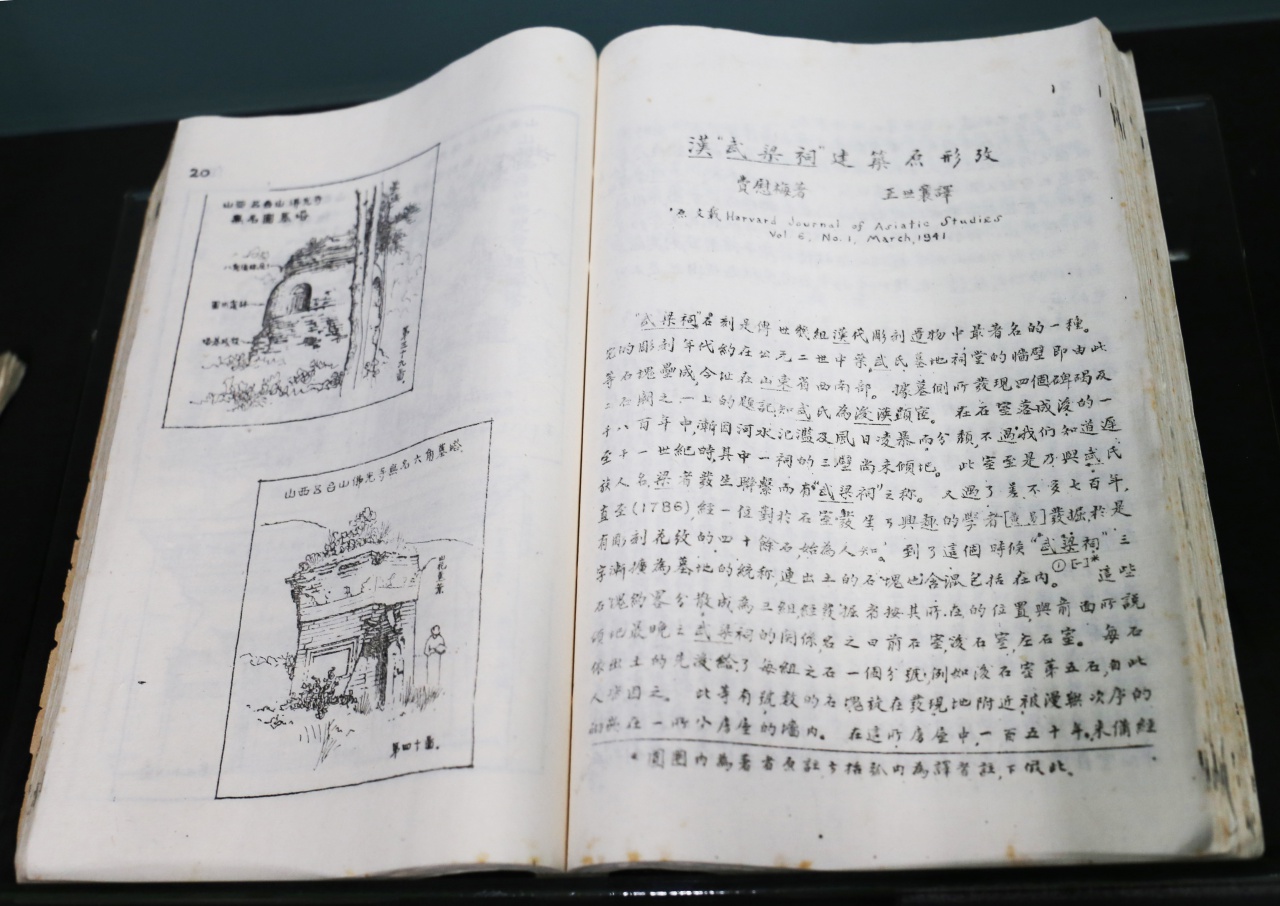 20
山西五台山佛光寺
無名圓墓塔
第三十九圖.
山西五台山佛光寺無名六角墓塔.
山花蕉葉
第四十圖.
漢"武梁祠"建築原形攷
費慰梅著 王世襄譯
*原文載 Harvard Journal of Asiatic Studies
Vol 6, No.1, March, 1941
"武梁祠"石刻是傳世幾組漢代彫刻遺物中最著名的一種。
它的彫刻年代約在公元二世中葉,武氏墓地祠堂的牆壁即由此
等石塊壘成,今址在山東省西南部。據墓側所發現四個碑碣及
二石闕之一上的題記知武氏為後漢顕宦。在石室落成後的一
千八百年中,漸因河水氾濫及風日凌暴而分頹,不過我們知道遲
至十一世紀時,其中一祠的三壁尚未傾圮。此室至是乃與武氏
族人名梁者發生聯繫而有"武梁祠"之称。又過了差不多七百年,
直至(1786),經一位對於石室發生了興趣的學者[]發掘,於是
有彫刻花紋的四十餘石,始為人知。到了這個時候"武梁祠"三
字漸擴為墓地的統称,連出土的石塊也含混包括在內。①[一]* 這些
石塊約畧分散成為三組,經發掘者按其所在的位置與前面所說
傾圮最晚之武梁祠的関係,名之曰前石室,後石室,左石室。每石
依出土的先後給了每組之石一個分號,例如後石室第五石,自此
人皆因之。此等有號數的石塊放在發現地附近被漫無次序的
嵌在一所小房屋的墻內。在這所房屋中,一百五十年来備經
* 圓圈內為著者原註,方括弧內為譯者註,下倣此。